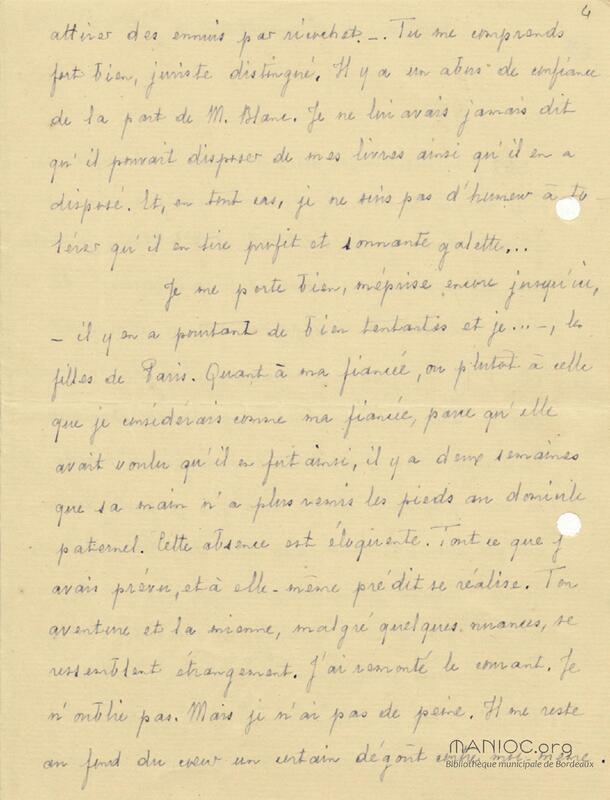 4
attirer des ennuis par ricochet. _. Tu me comprends
fort bien, juriste distingué. Il y a un abus de confiance
de la part de M. Blanc. Je ne lui avais jamais dit
qu'il pouvait disposer de mes livres ainsi qu'il en a
disposé. Et, en tout cas, je ne suis pas d'humeur à to
lérer qu'il en tire profit et sonnante galette...
Je me porte bien, méprise encore jusqu'ici,
– il y en a pourtant de bien tentantes et je... –, les
filles de Paris. Quant à ma fiancée, ou plutôt à celle
que je considérais comme ma fiancée, parce qu'elle
avait voulu qu'il en fut ainsi, il y a deux semaines
que sa main n'a plus remis les pieds au domicile
paternel. Cette absence est éloquente. Tout ce que j'
avais prévu, et à elle-même prédit se réalise. Ton
aventure et la mienne, malgré quelques nuances, se
ressemblent étrangement. J'ai remonté le courant. Je
n'oublie pas. Mais je n'ai pas de peine. Il me reste
au fond du coeur un certain dégoût contre moi-même.
MANIOC.org
Bibliothèque municipale de Bordeaux